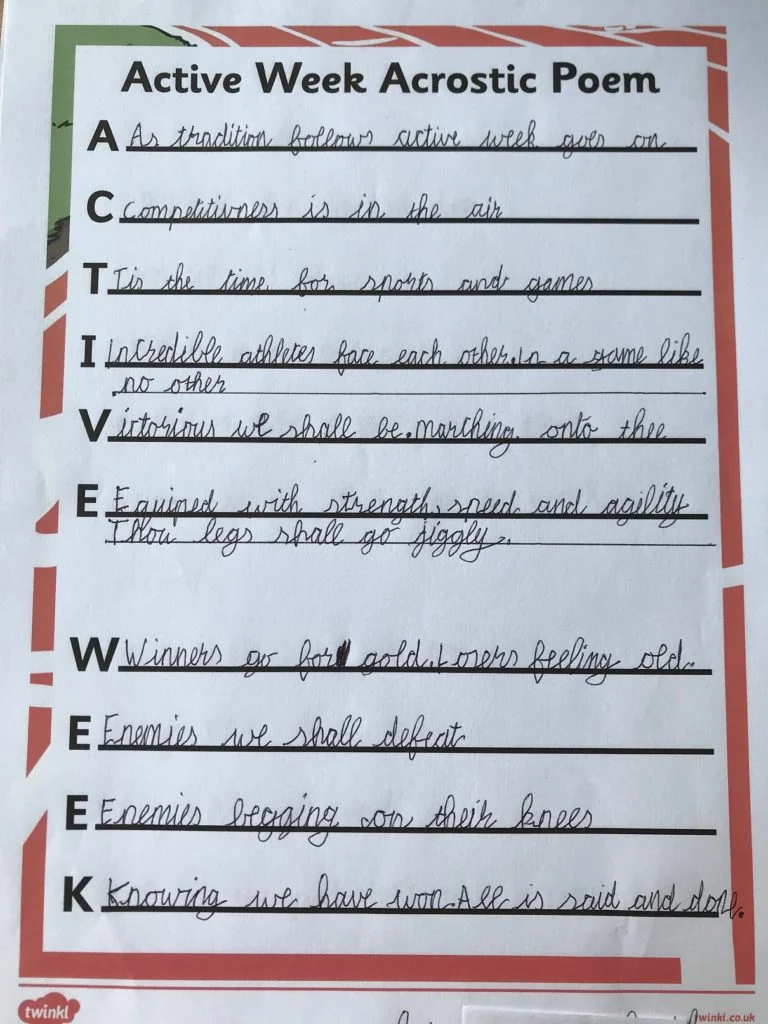 Active Week Acrostic Poem
A As tradition follows active week goes on
C Competitivness is in the air
T Tis the time for sports and games
I Incredible athletes face each other. In a game like
no other
V ictorious we shall be. marching onto thee
E Equiped with strength, speed and agility
Thou legs shall go jiggly.
W Winners go for gold. Losers feeling old.
E Enemies we shall defeat
E Enemies begging on their knees
K Knowing we have won. All is said and done.
twinkl
twinkl.co.uk